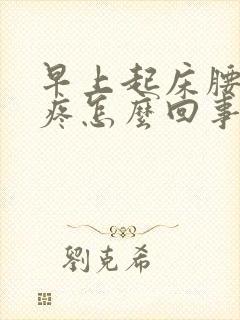 早上起床腰
疼怎麼回事
劉克希